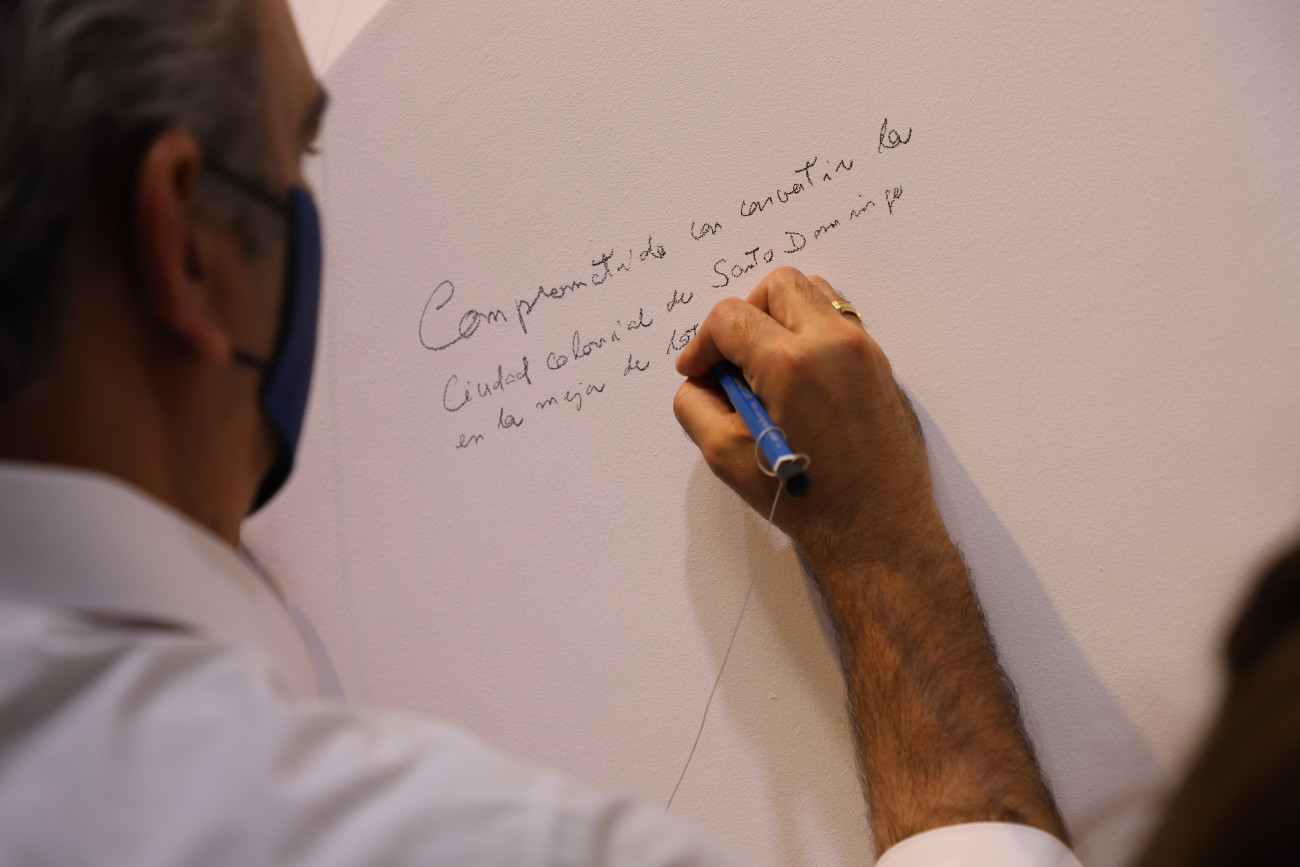 Comprometido con convertir la
Ciudad colonial de Santo Domingo
en la mejor de